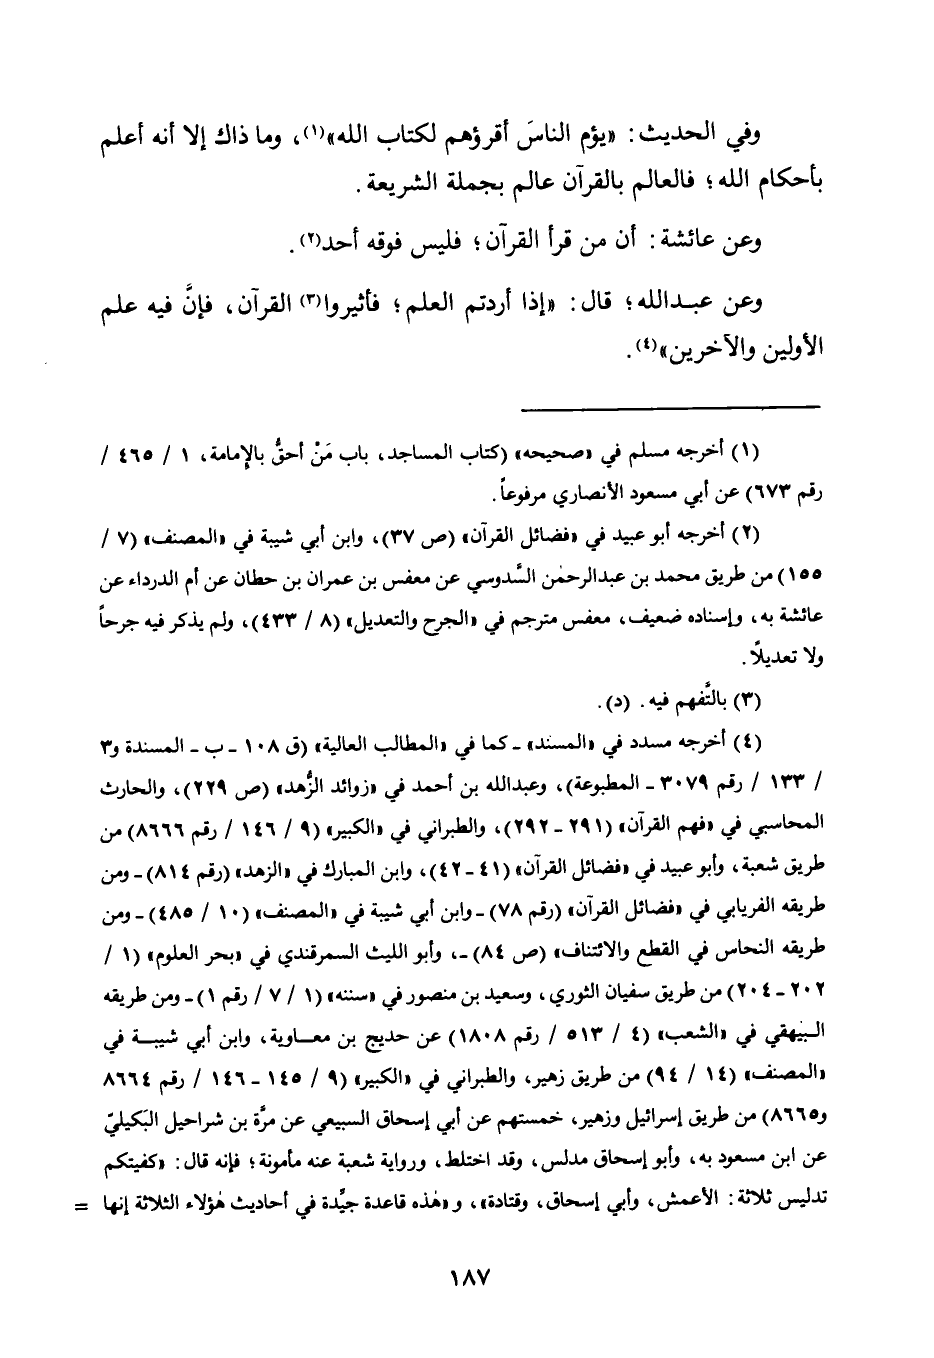 وفي الحديث: «يؤم الناسَ أقرؤهم لكتاب الله»(١)، وما ذاك إلا أنه أعلم
بأحكام الله؛ فالعالم بالقرآن عالم بجملة الشريعة.
وعن عائشة: أن من قرأ القرآن؛ فليس فوقه أحد(٢).
وعن عبدالله؛ قال: «إذا أردتم العلم؛ فأثيروا(٣) القرآن، فإنَّ فيه علم
الأولين والآخرين»(٤).
(١) أخرجه مسلم في «صحيحه» (كتاب المساجد، باب مَنْ أحقُّ بالإمامة، ١ / ٤٦٥ /
رقم ٦٧٣) عن أبي مسعود الأنصاري مرفوعاً.
(٢) أخرجه أبو عبيد في «فضائل القرآن» (ص ٣٧)، وابن أبي شيبة في «المصنف» (٧ /
١٥٥) من طريق محمد بن عبدالرحمٰن السَّدوسي عن معفس بن عمران بن حطان عن أم الدرداء عن
عائشة به، وإسناده ضعيف، معفس مترجم في «الجرح والتعديل» (٨ / ٤٣٣)، ولم يذكر فيه جرحاً
ولا تعديلاً.
(٣) بالتَّفهم فيه. (د).
(٤) أخرجه مسدد في «المسند» - كما في «المطالب العالية» (ق ١٠٨ - ب - المسندة و٣
/ ١٣٣ / رقم ٣٠٧٩ - المطبوعة)، وعبدالله بن أحمد في «زوائد الزُّهد» (ص ٢٢٩)، والحارث
المحاسبي في «فهم القرآن» (٢٩١ - ٢٩٢)، والطبراني في «الكبير» (٩ / ١٤٦ / رقم ٨٦٦٦) من
طريق شعبة، وأبو عبيد في «فضائل القرآن» (٤١ - ٤٢)، وابن المبارك في «الزهد» (رقم ٨١٤) - ومن
طريقه الفريابي في «فضائل القرآن» (رقم ٧٨) - وابن أبي شيبة في «المصنف» (١٠ / ٤٨٥) - ومن
طريقه النحاس في القطع والائتناف» (ص ٨٤) -، وأبو الليث السمرقندي في «بحر العلوم» (١ /
٢٠٢ - ٢٠٤) من طريق سفيان الثوري، وسعيد بن منصور في «سننه» (١ / ٧ / رقم ١) - ومن طريقه
البيهقي في «الشعب» (٤ / ٥١٣ / رقم ١٨٠٨) عن حديج بن معاوية، وابن أبي شيبة في
«المصنف» (١٤ / ٩٤) من طريق زهير، والطبراني في «الكبير» (٩ / ١٤٥ - ١٤٦ / رقم ٨٦٦٤
و٨٦٦٥) من طريق إسرائيل وزهير، خمستهم عن أبي إسحاق السبيعي عن مرَّة بن شراحيل البَكيليّ
عن ابن مسعود به، وأبو إسحاق مدلس، وقد اختلط، ورواية شعبة عنه مأمونة؛ فإنه قال: «كفيتكم
تدليس ثلاثة: الأعمش، وأبي إسحاق، وقتادة»، و «هٰذه قاعدة جيِّدة في أحاديث هٰؤلاء الثلاثة إنها =
١٨٧